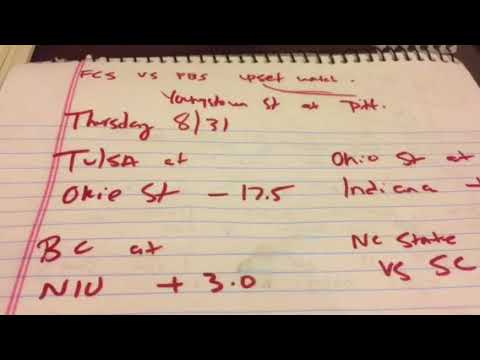 FCS vs FBS upset watch.
Youngstown St at Pitt.
Thursday 8/31
Tulsa at
Okie St - 17.5
Ohio St at
Indiana +
BC at
NIU + 3.0
NC State
vs SC